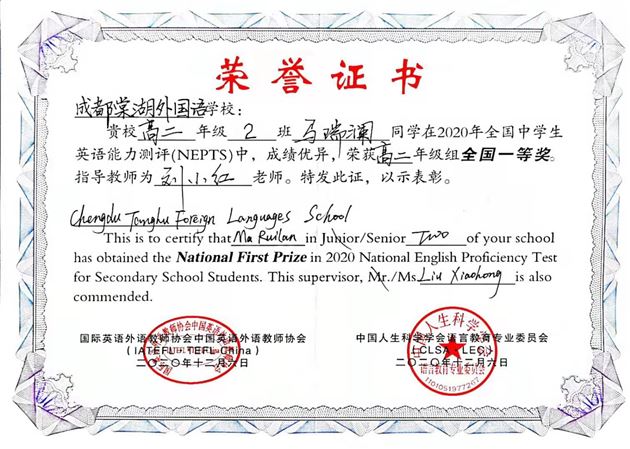 荣誉证书
成都棠湖外国语学校：
贵校高二年级2班马瑞澜同学在2020年全国中学生
英语能力测评(NEPTS)中，成绩优异，荣获高二年级组全国一等奖。
指导教师为刘小红老师。特发此证，以示表彰。
Chengdu Tanghu Foreign Languages School
This is to certify that Ma Ruilan in Junior/Senior Two of your school
has obtained the National First Prize in 2020 National English Proficiency Test
for Secondary School Students. This supervisor, Mr./Ms. Liu Xiaohong is also
commended.
国际英语外语教师协会中国英语外语教师协会
(IATEFL·TEFL China)
二〇二〇年十二月六日
中国人生科学学会语言教育专业委员会
(CLSA·LEC)
二〇二〇年十二月六日
中国人生科学学会
语言教育专业委员会
1101051977267